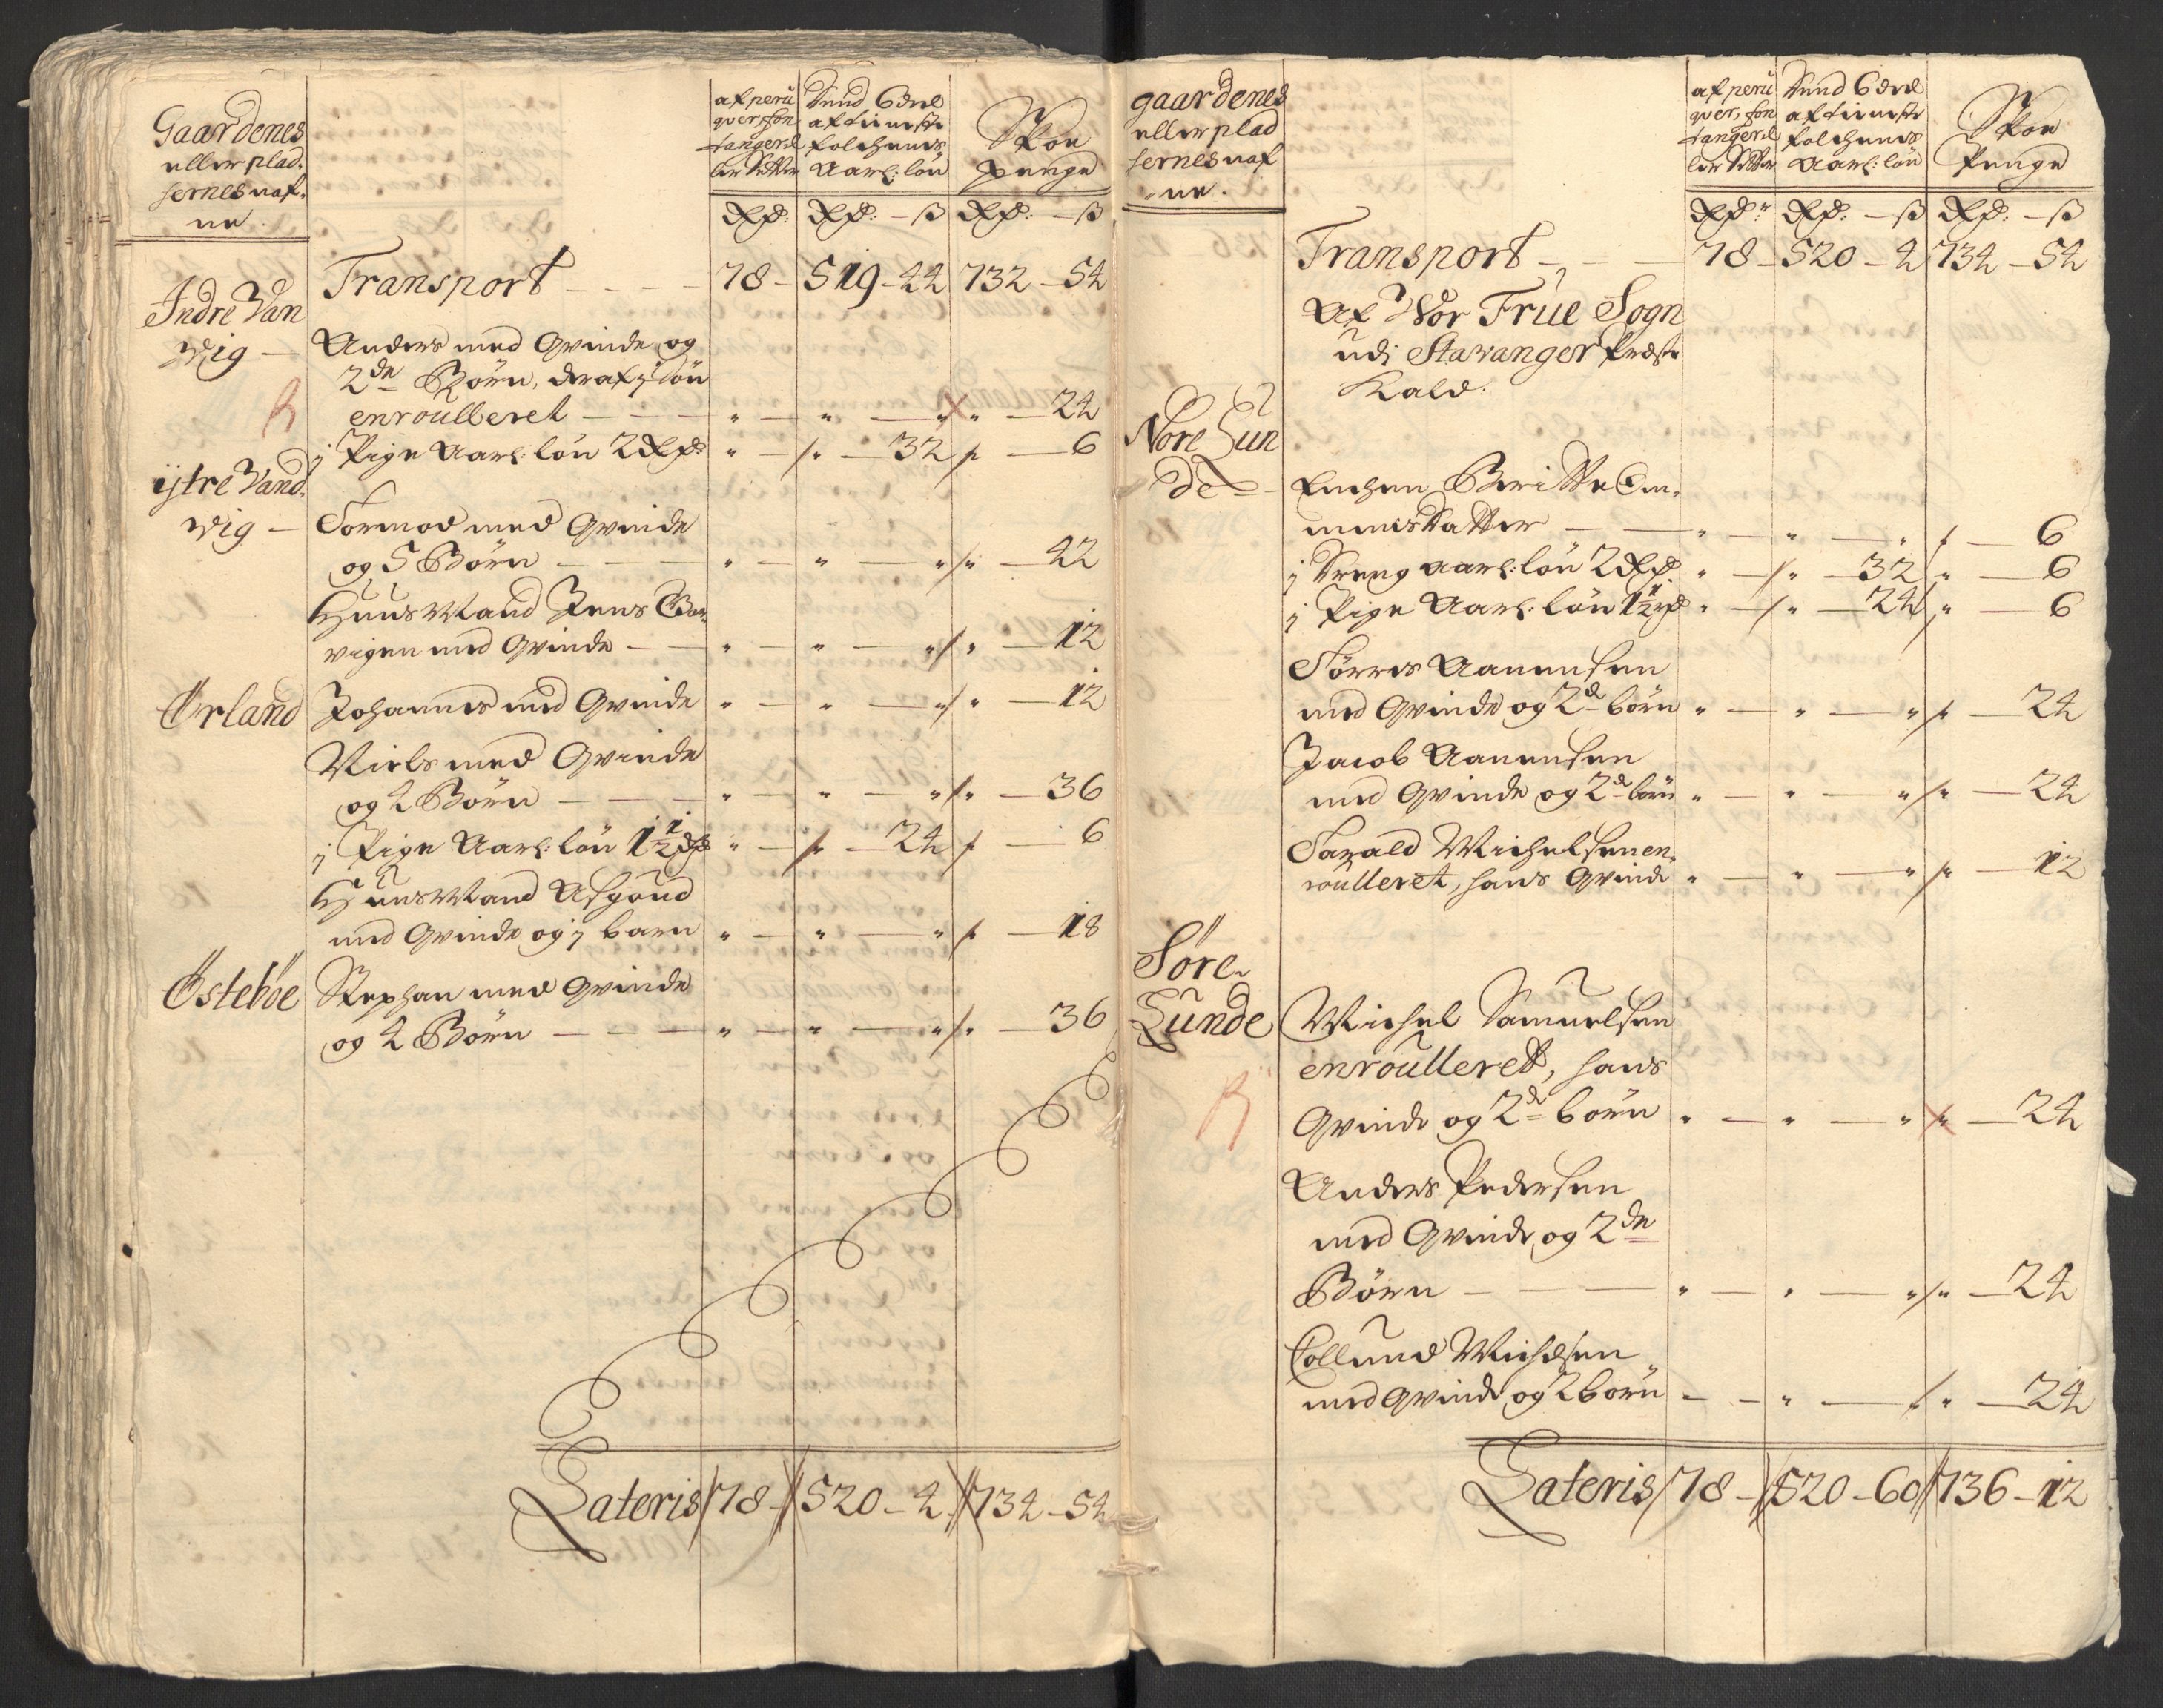 Gaardenes
eller plad-
sernes naf-
ne.
af peru
qver, fon
tanger el
ler Setter
Sund 6 deel
af tieneste
folchenes
Aarl: løn
Skoe
penge
Rd: Rd: - ß Rd: - ß
Transport - - - - 78 - 519 - 44 732 - 54
Indre Van
vig -
Anders med Qvinde og
2de Börn, deraf j sön
enroulleret - - - " - " - " " - 24
j Pige Aarl: lön 2 Rd: " - " - 32 " - 6
ijtre Vand-
vig -
Tormod med Qvinde
og 5 Börn - - - " - " - " " - 42
Huusmand Jens
vigen med Qvinde - - " - " - " " - 12
Örland Johannes med Qvinde " - " - " " - 12
Niels med Qvinde
og 4 Börn - - - " - " - " " - 36
j Pige Aarl: lön 1½ Rd " - " - 24 " - 6
Huusmand Asgoud
med Qvinde og j barn " - " - " " - 18
Östeböe Stephan med Qvinde
og 4 Börn - - - " - " - " " - 36
Lateris 78 - 520 - 4 734 - 54
gaardenes
eller plad
sernes naf
ne.
af peru
qver, fon
tanger el
ler Setter
Sund 6 deel
af tieneste
folchenes
Aarl: lön
Skoe
Penge
Rd: Rd: - ß Rd: - ß
Transport - - 78 - 520 - 4 734 - 54
Af Vor Frue Sogn
udi Stavanger Præste
Kald.
Nore Sun
de - Enchen Beritte
mensdatter - - " - " - " " - 6
j Dreng aarl: lön 2 Rd " - " - 32 " - 6
j Pige Aarl: lön 1½ rd " - " - 24 " - 6
Törres Aanensen
med Qvinde og 2de börn " - " - " " - 24
Jacob Aanensen
med Qvinde og 2de börn " - " - " " - 24
Tarald Michelsen en-
roulleret, hans Qvinde " - " - " " - 12
Söre-
Sunde Michel Samuelsen
enroulleret, hans
Qvinde og 2de börn " - " - " " - 24
Anders Pedersen
med Qvinde og 2de
Börn - - - " - " - " " - 24
Collund Michelsen
med Qvinde og 2 börn - - " - " - 24
Lateris 78 - 520 - 60 736 - 12